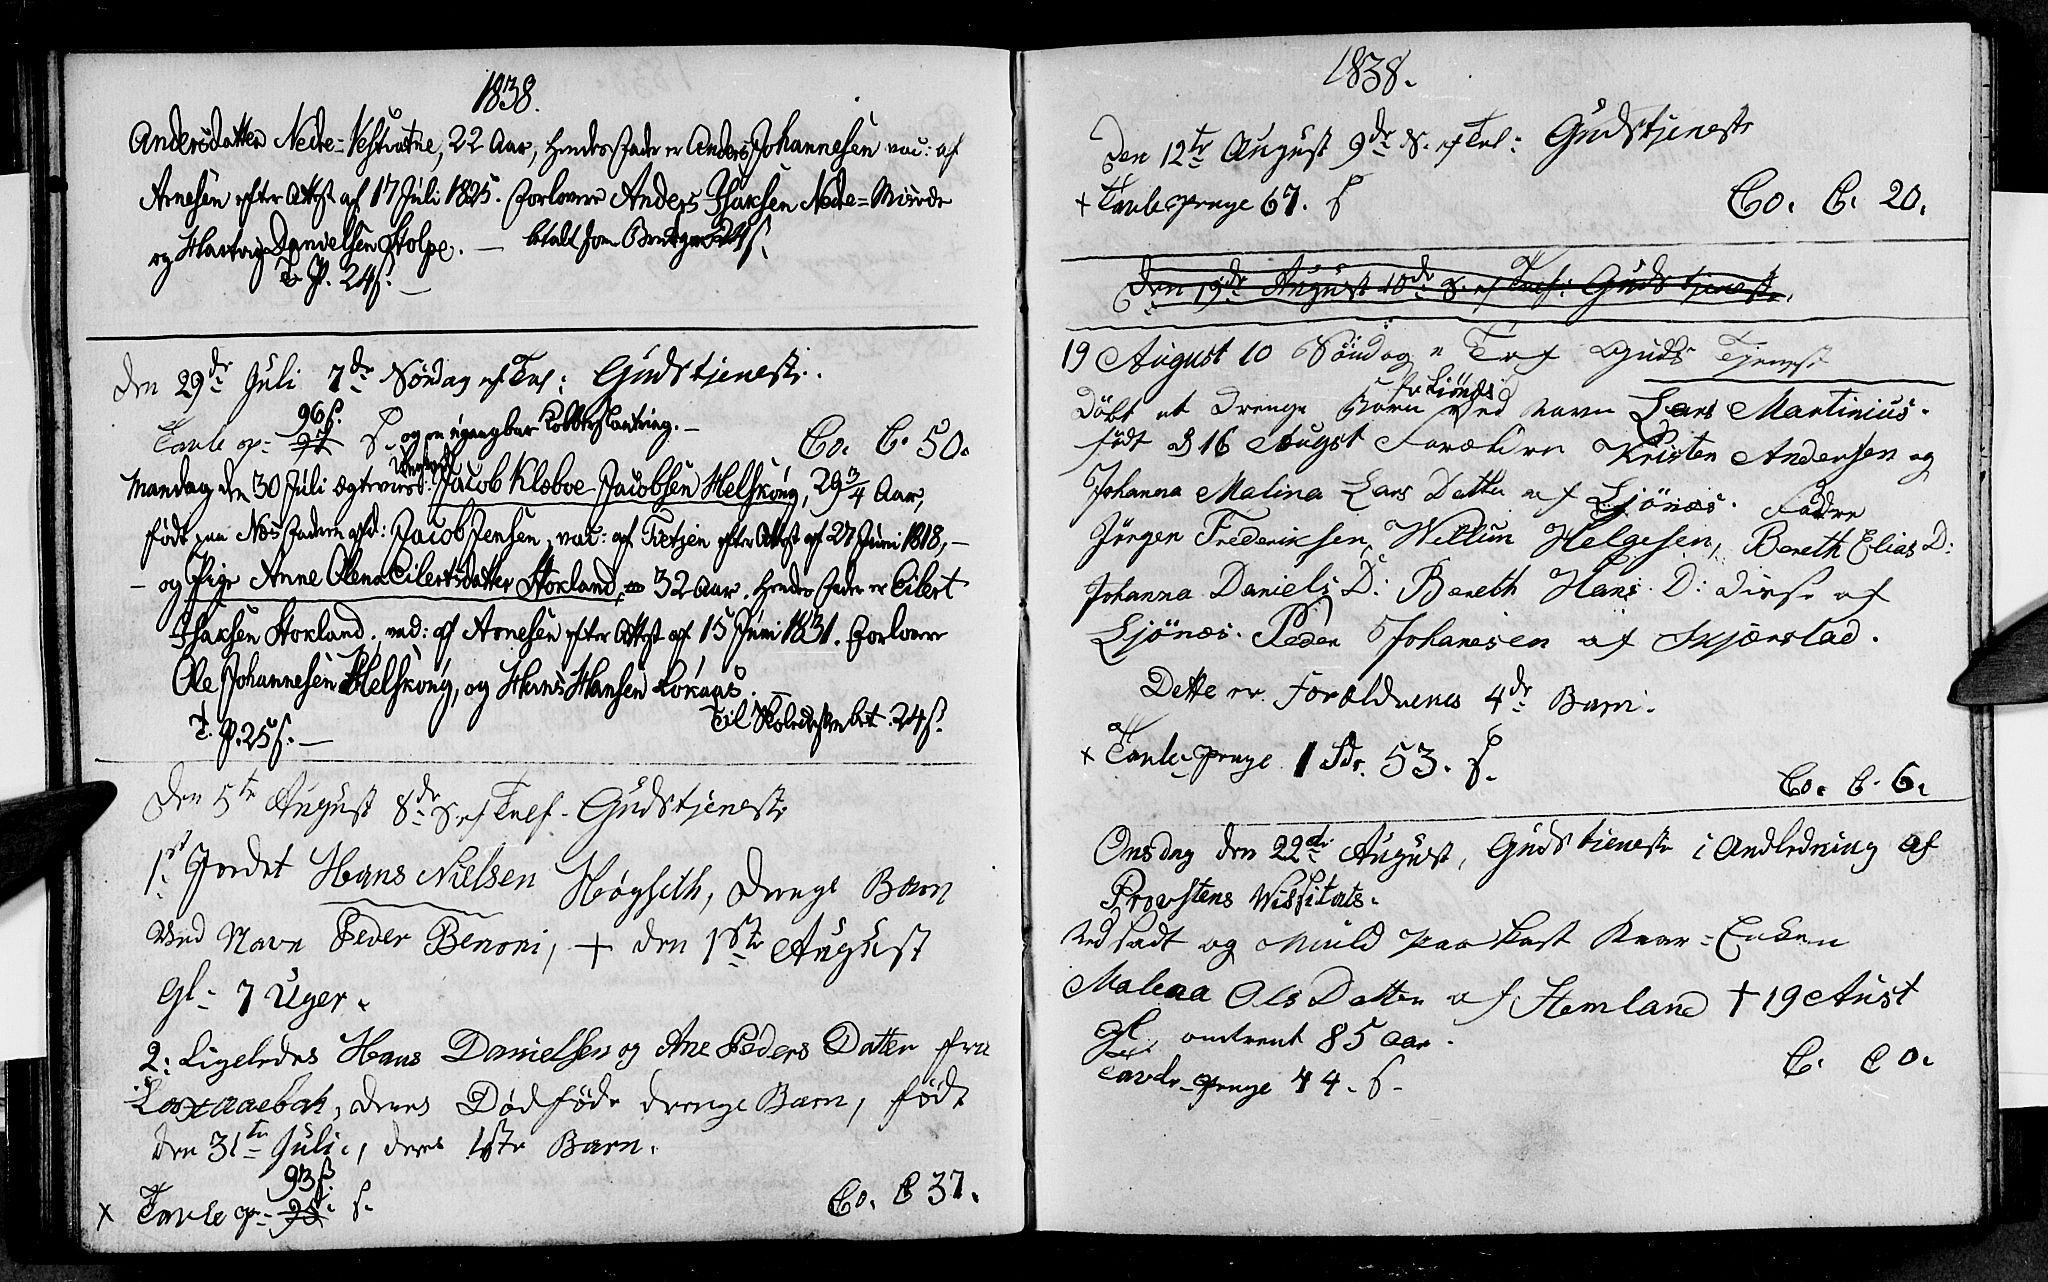 1838.
Andersdatter Nedre=Vestvatne, 22 Aar, hendes Fader er Anders Johannesen vac: af
Arnesen efter Attest af 17 Juli 1825. Forlovere Anders Isaksen Nedre=Misvær
og Hartvig Danielsen Stolpe. — betalt som Brudgom 24 s.
T. P. 24 s. —
Den 29de Juli 7de Søndag ef. Tref: Gudstjeneste.
96 s.
Tavle p= 97 s. og en ugangbar Kobberskilling. — Co. C. 50.
Mandag den 30 Juli ægteviet: Jacob Klæboe Jacobsen Helskong, 29 3/4 Aar,
født paa Næs Fader afd: Jacob Jensen, vac: af Tietjen efter Attest af 27 Juni 1818, —
— og Pige Anne Olena Eilertsdatter Stokland, 32 Aar. hendes Fader er Eilert
Isaksen Stokland. vac: af Arnesen efter Attest af 15 Juni 1831. Forlovere
Ole Johannesen Helskong, og Hans Hansen Lokaas.
Til Skolekassen bet. 24 s.
T. P. 25 s. —
Den 5te August 8de S. ef Tref- Gudstjeneste
1st Jordet Hans Nielsen Høgseth, drenge Barn
ved Navn Peder Benoni, + den 1ste August
Gl- 7 Uger.
2: Ligeledes Hans Danielsen og Ane Peders Datter fra
deres Dødføde drenge Barn, født
den 31te Juli, deres 1ste Barn.
93 s.
x Tavle p= 95 s. Co. C 37.
1838.
Den 12te August 9de S. ef Tref: Gudstjeneste
+ Tavlepenge 67. s Co. C. 20.
Den 19de August 10de S. ef Tref: Gudstjeneste.
19 August 10 Søndag e Tref Guds Tjeneste
Døbt et drenge Barn ved navn Lars Martinius.
født d 16 August Forældre Kristen Andersen og
Johanna Malina Lars Datter af Ljønæs. Fadre
Jörgen Frederiksen, Willum Helgesen, Bereth Elias D:
Johanna Daniels D: Bereth Hans D: disse af
Ljönæs. Peder Johanesen af Skjærstad.
Dette er Forældrenes 4de Barn.
x Tavlepenge 1 Sdr. 53. s. Co. C. 6.
Onsdag den 22de August, Gudstjeneste i Andledning af
Provstens Wissitats.
Malena Ols Datter af Hemland + 19 Aust
Gl. omtrent 85 Aar.
Tavle-penge 44. s. C. C 0.